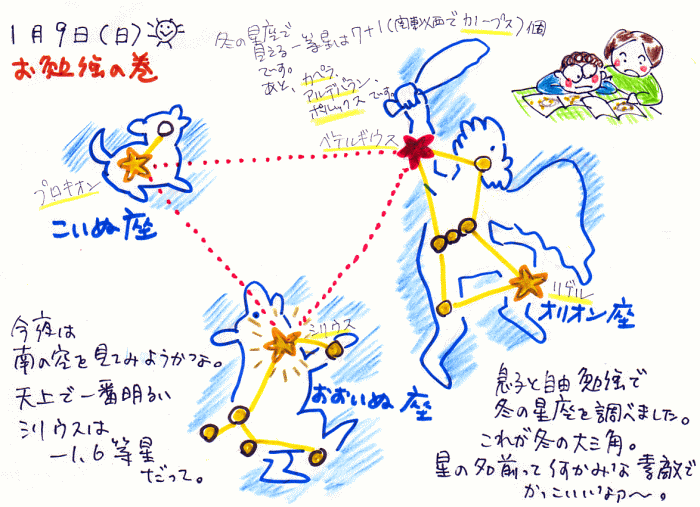 1月9日(日)
お勉強の巻
冬の星座で
見える一等星は7+1(関東以西でカノープス)個
です。
あと、カペラ、
アルデバラン、
ポルックスです。
ベテルギウス
プロキオン
こいぬ座
リゲル
オリオン座
シリウス
おおいぬ座
今夜は
南の空を見てみようかなよ。
天上で一番明るい
シリウスは
-1.6等星
だって。
息子と自由勉強で
冬の星座を調べました。
これが冬の大三角。
星の名前って何かみな素敵で
かっこいいなァ〜。